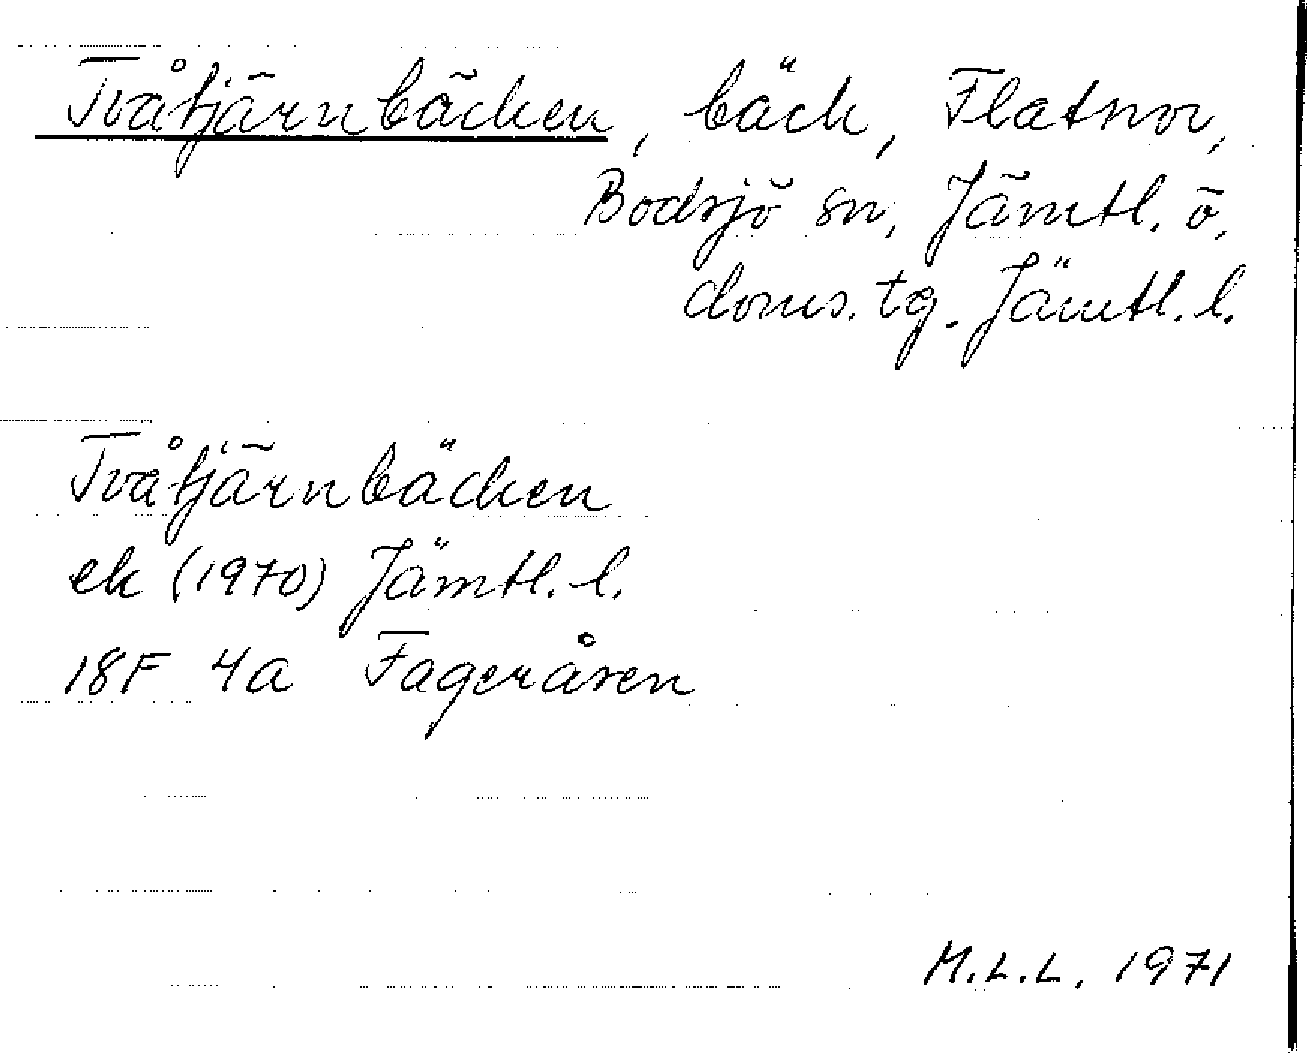 Tvåtjärnbäcken, bäck, Flatnor,
Bodsjö sn, Jämtl. ö,
doms. tg. Jämtl. l.
Tvåtjärnbäcken
ek (1970) Jämtl. l.
18F 4a Fageråsen
M.L.L. 1971